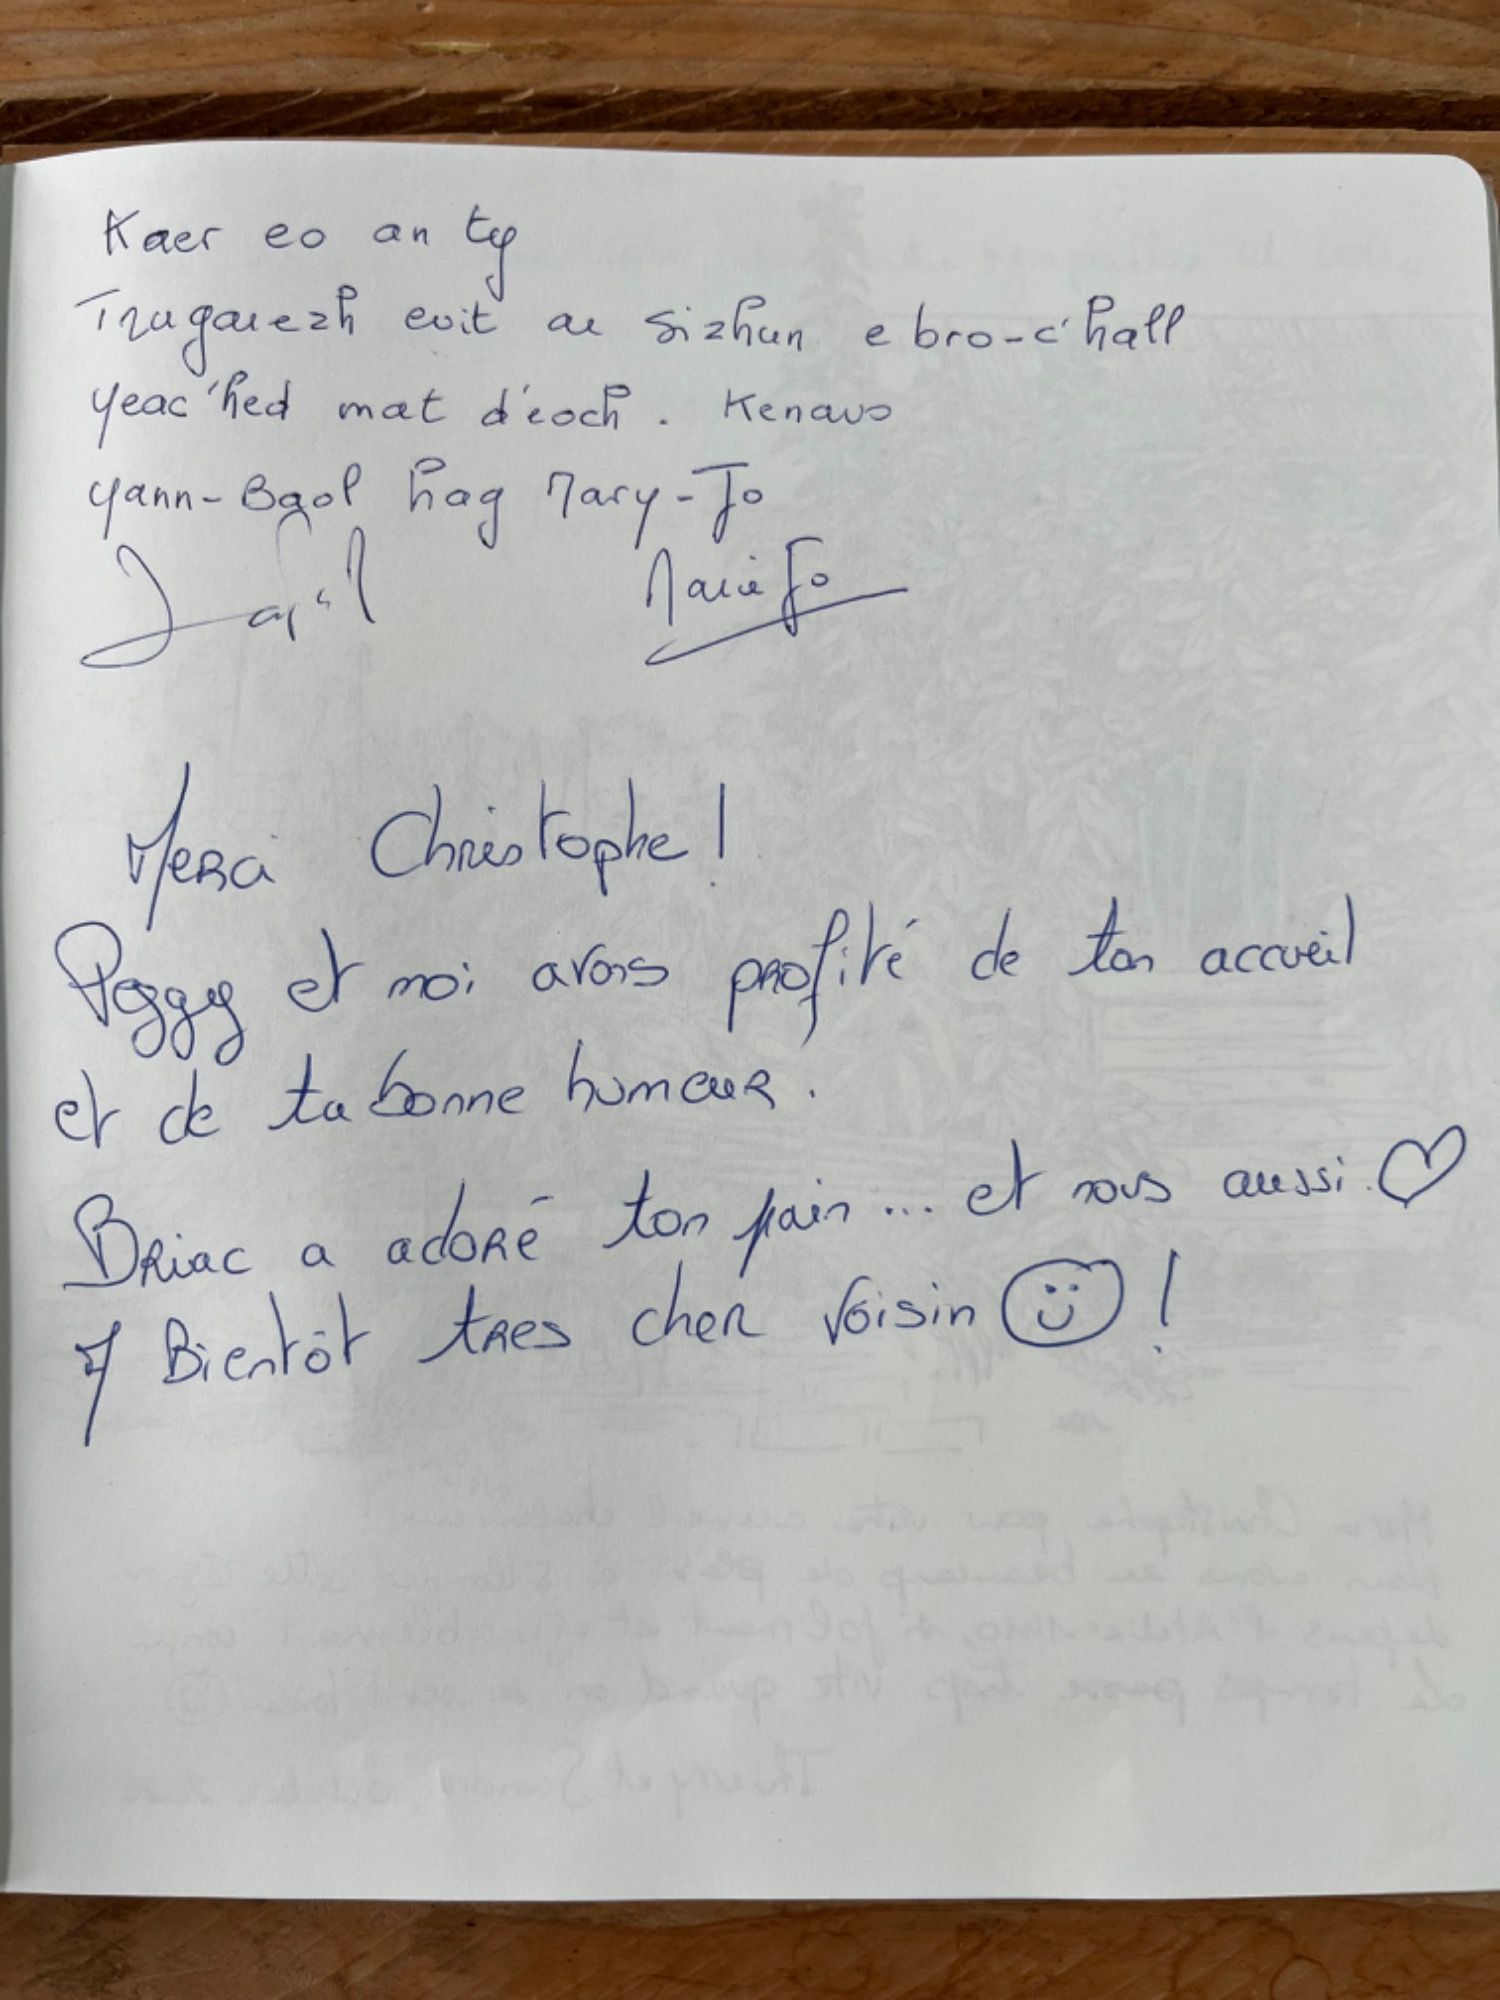 Kaer eo an ty
Trugarezh evit ar sizhun e bro-c'hall
yeac'hed mat d'éoch. Kenavo
yann-Baol hag Mary-Jo
Marie Jo
Merci Christophe!
Peggy et moi avons profité de ton accueil
et de ta bonne humeur.
Briac a adoré ton pain... et nous aussi. ♡
A Bientôt tres cher voisin ☺!